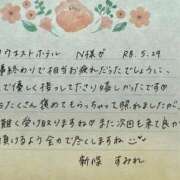 クウエストホテル N様が R8.5.29
事終わりで相当お疲れだったでしょうに…
で優しく接してださり嬉しかったですが
たくさん褒めてもらっちゃって照れましたが、
難く受け取りますねがまた次回も来て良か
頂けるよう含めて尽くしますね
新宿 すみれ